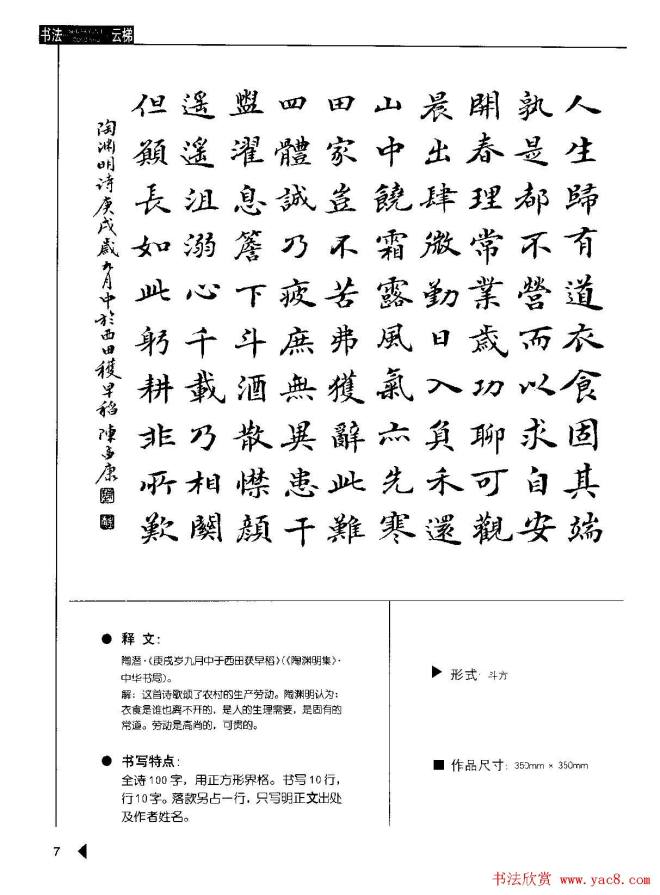 书法 云梯
人生歸有道衣食固其端
孰是都不營而以求自安
開春理常業歲功聊可觀
晨出肆微勤日入負禾還
山中饒霜露風氣亦先寒
田家豈不苦弗獲辭此難
四體誠乃疲庶無異患干
盥濯息簷下斗酒散襟顔
遥遥沮溺心千載乃相關
但願長如此躬耕非所歎
陶渊明詩庚戌歲九月中於西田穫早稻 陳 康
● 释文：
陶潜·《庚戌岁九月中于西田获早稻》(《陶渊明集》·
中华书局)。
解：这首诗歌颂了农村的生产劳动。陶渊明认为：
衣食是谁也离不开的，是人的生理需要，是固有的
常道。劳动是高尚的，可贵的。
● 书写特点：
全诗100字，用正方形界格。书写10行，
行10字。落款另占一行，只写明正文出处
及作者姓名。
▶ 形式：斗方
■ 作品尺寸：350mm × 350mm
7 ◀
书法欣赏 www.yac8.com